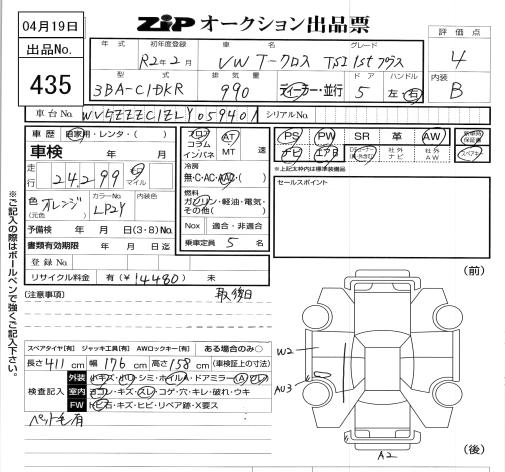 04月19日
ZiPオークション出品票
出品No.
435
年式 初年度登録 車名 グレード
R2年2月 VW T-クロス TSI 1stプラス
型式 排気量 ドア ハンドル
3BA-C1DKR 990 ディーラー・並行 5 左・右
評価点
4
内装
B
車台No. シリアルNo.
車歴 自家用・レンタ・( )
車検 年 月
走行 24,299 キロ マイル
色 (元色) オレンジ カラーNo. LP2Y 内装色
予備検 年 月 日(3・8)No.
書類有効期限 年 月 日迄
登録No.
リサイクル料金 有(¥14480) 未
フロア コラム インパネ AT MT 速
冷房
無・C・AC・AAC・( )
燃料
ガソリン・軽油・電気・その他( )
Nox 適合・非適合
乗車定員 5 名
PS PW SR 革 AW 新車時保証書
ナビ エアB 社外ナビ 社外AW スペアキー
※上記太枠内は標準装備品
セールスポイント
※ご記入の際はボールペンで強くご記入下さい。
(注意事項) 取後日
スペアタイヤ[有] ジャッキ工具[有] AWロックキー[有] ある場合のみ○
長さ 411 cm 幅 176 cm 高さ 158 cm (車検証上の寸法)
検査記入
外装 小キズ・小凹・シミ・ホイルA・ドアミラー(A・ワレ)
室内 ヨゴレ・キズ・スレ・コゲ・穴・キレ・破れ・ウキ
FW トビ石・キズ・ヒビ・リペア跡・X要ス
ペット毛有
(前)
W2
AU3
A2
(後)